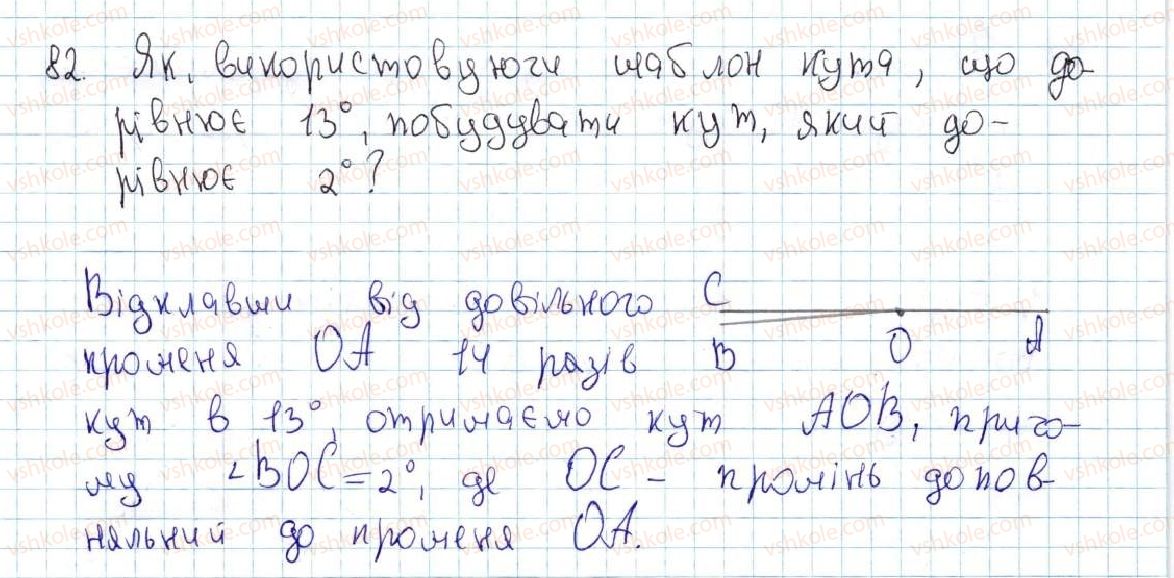 82. Як, використовуючи шаблон кута, що до-
рівнює 13°, побудувати кут, який до-
рівнює 2°?
Відклавши від довільного
променя OA 14 разів
кут в 13°, отримаємо кут AOB, причо-
му ∠BOC = 2°, де OC - промінь допов-
няльний до променя OA.
C
B O A
vshkole.com